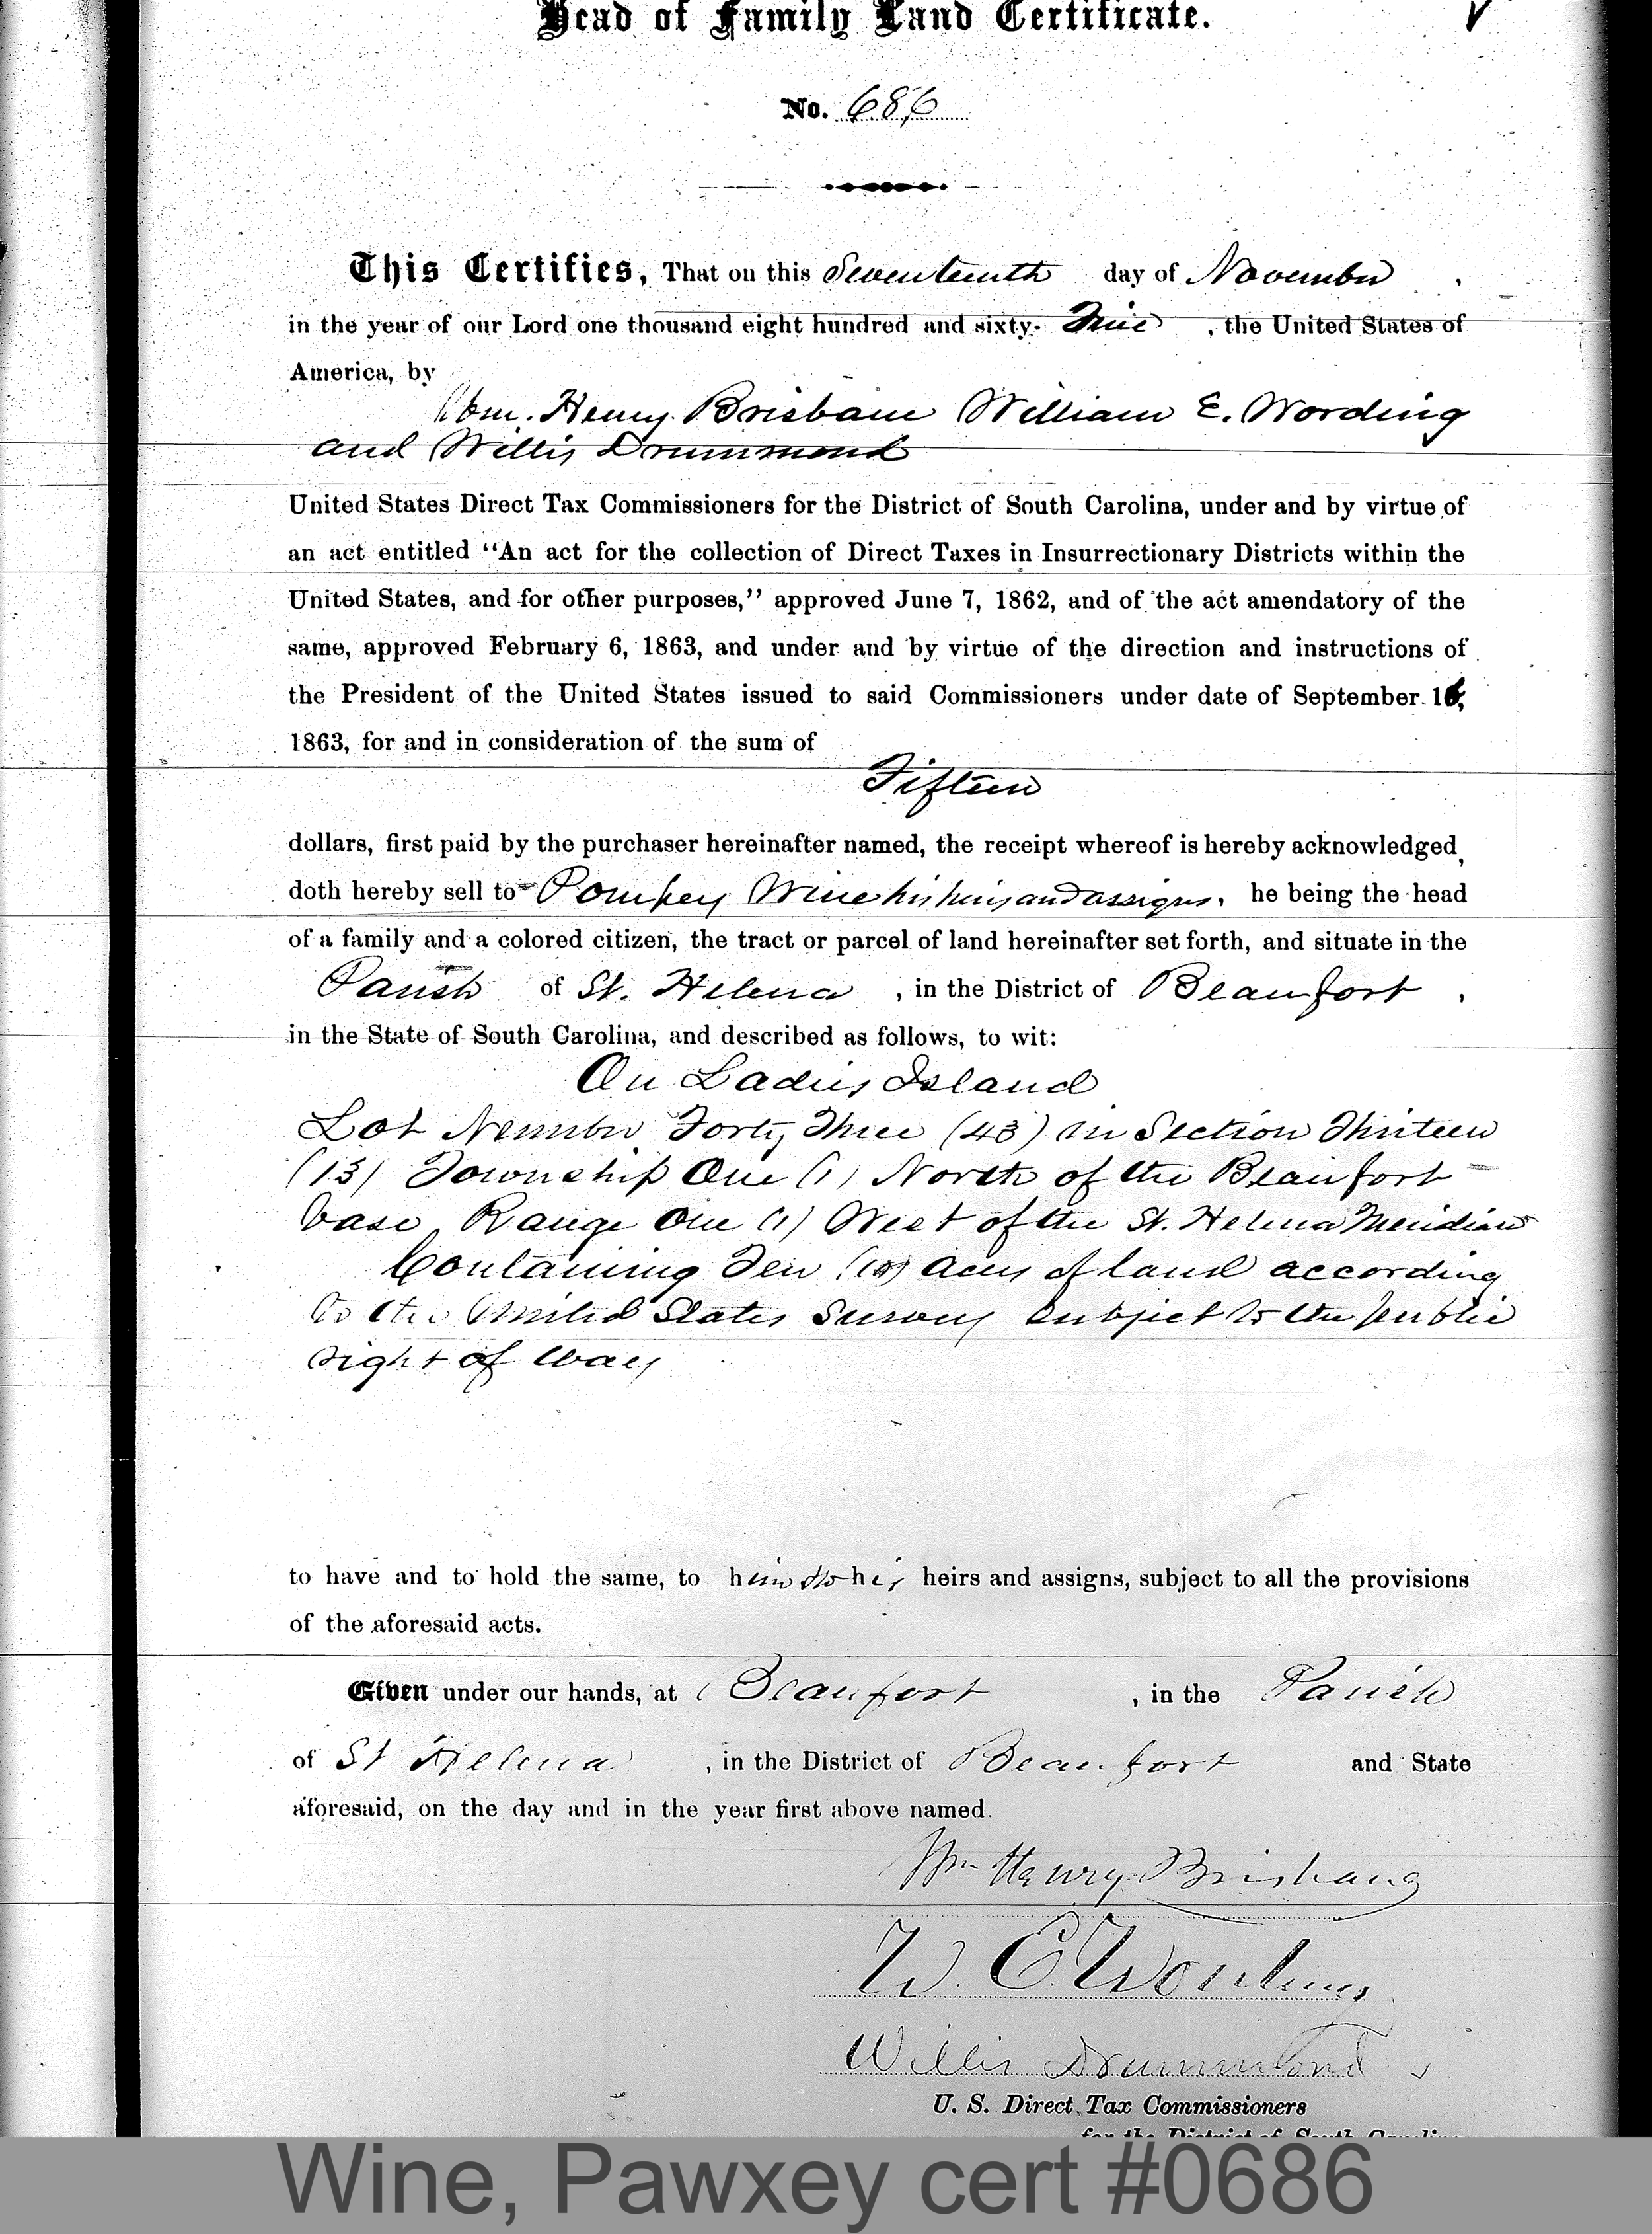 Head of Family Land Certificate.
No. 686
This Certifies, That on this Seventeenth day of November ,
in the year of our Lord one thousand eight hundred and sixty- Five , the United States of
America, by
Wm. Henry Brisbane William E. Wording
and Willis Drummond
United States Direct Tax Commissioners for the District of South Carolina, under and by virtue of
an act entitled "An act for the collection of Direct Taxes in Insurrectionary Districts within the
United States, and for other purposes," approved June 7, 1862, and of the act amendatory of the
same, approved February 6, 1863, and under and by virtue of the direction and instructions of
the President of the United States issued to said Commissioners under date of September 16,
1863, for and in consideration of the sum of
Fifteen
dollars, first paid by the purchaser hereinafter named, the receipt whereof is hereby acknowledged,
doth hereby sell to Pompey Wine his heirs and assigns, he being the head
of a family and a colored citizen, the tract or parcel of land hereinafter set forth, and situate in the
Parish of St. Helena , in the District of Beaufort ,
in the State of South Carolina, and described as follows, to wit:
On Ladies Island
Lot Number Forty Three (43) in Section Thirteen
(13) Township One (1) North of the Beaufort
base, Range One (1) West of the St. Helena Meridian
Containing Ten (10) Acres of land according
to the United States Survey subject to the public
right of way
to have and to hold the same, to him & to his heirs and assigns, subject to all the provisions
of the aforesaid acts.
Given under our hands, at Beaufort , in the Parish
of St Helena , in the District of Beaufort and State
aforesaid, on the day and in the year first above named.
Wm Henry Brisbane
W. E. Wording
Willis Drummond
U. S. Direct Tax Commissioners
for the District of South Carolina
Wine, Pawxey cert #0686